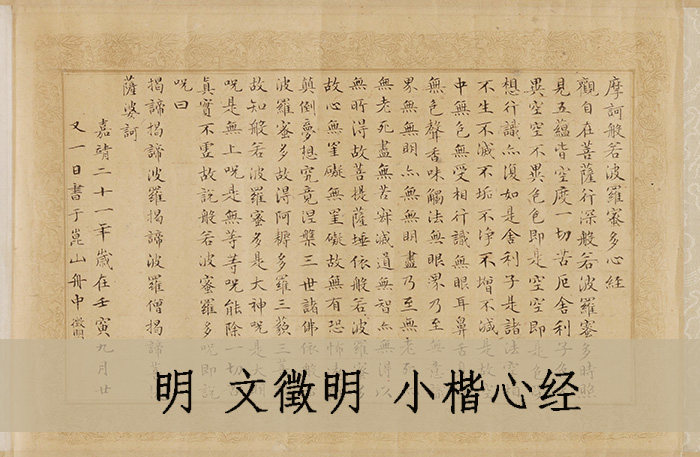 摩訶般若波羅蜜多心經
觀自在菩薩行深般若波羅蜜多時照
見五蘊皆空度一切苦厄舍利子
異空空不異色色即是空空即是色
想行識亦復如是舍利子是諸法空
不生不滅不垢不淨不增不減是故
中無色無受相行識無眼耳鼻舌
無色聲香味觸法無眼界乃至無意
界無無明亦無無明盡乃至無老死
無老死盡無苦寂滅道無智亦無得以
無所得故菩提薩埵依般若波羅
故心無罣礙無罣礙故無有恐怖
顛倒夢想究竟涅槃三世諸佛依般
波羅蜜多故得阿耨多羅三藐三菩
故知般若波羅蜜多是大神呪是大明
呪是無上呪是無等等呪能除一切
真實不虛故說般若波蜜羅多呪即說
呪曰
揭諦揭諦波羅揭諦波羅僧揭諦菩
薩婆訶
嘉靖二十一年歲在壬寅九月廿
又一日書于崑山舟中徵明
明 文徵明 小楷心经